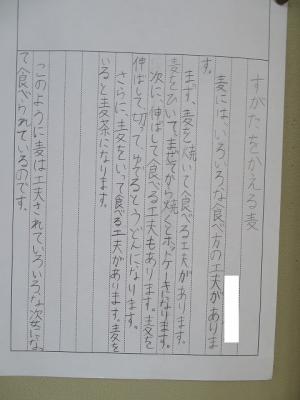 すがたをかえる麦
麦には、いろいろな食べ方の工夫がありま
す。
まず、麦を焼いて食べる工夫があります。
麦をひいて、まぜてから焼くとホットケーキになります。
次に、伸ばして食べる工夫もあります。麦を
伸ばして、切って、ゆでるとうどんになります。
さらに、麦をいって食べる工夫があります。麦を
いると麦茶になります。
このように麦は工夫されていろいろな姿になっ
て食べられているのです。